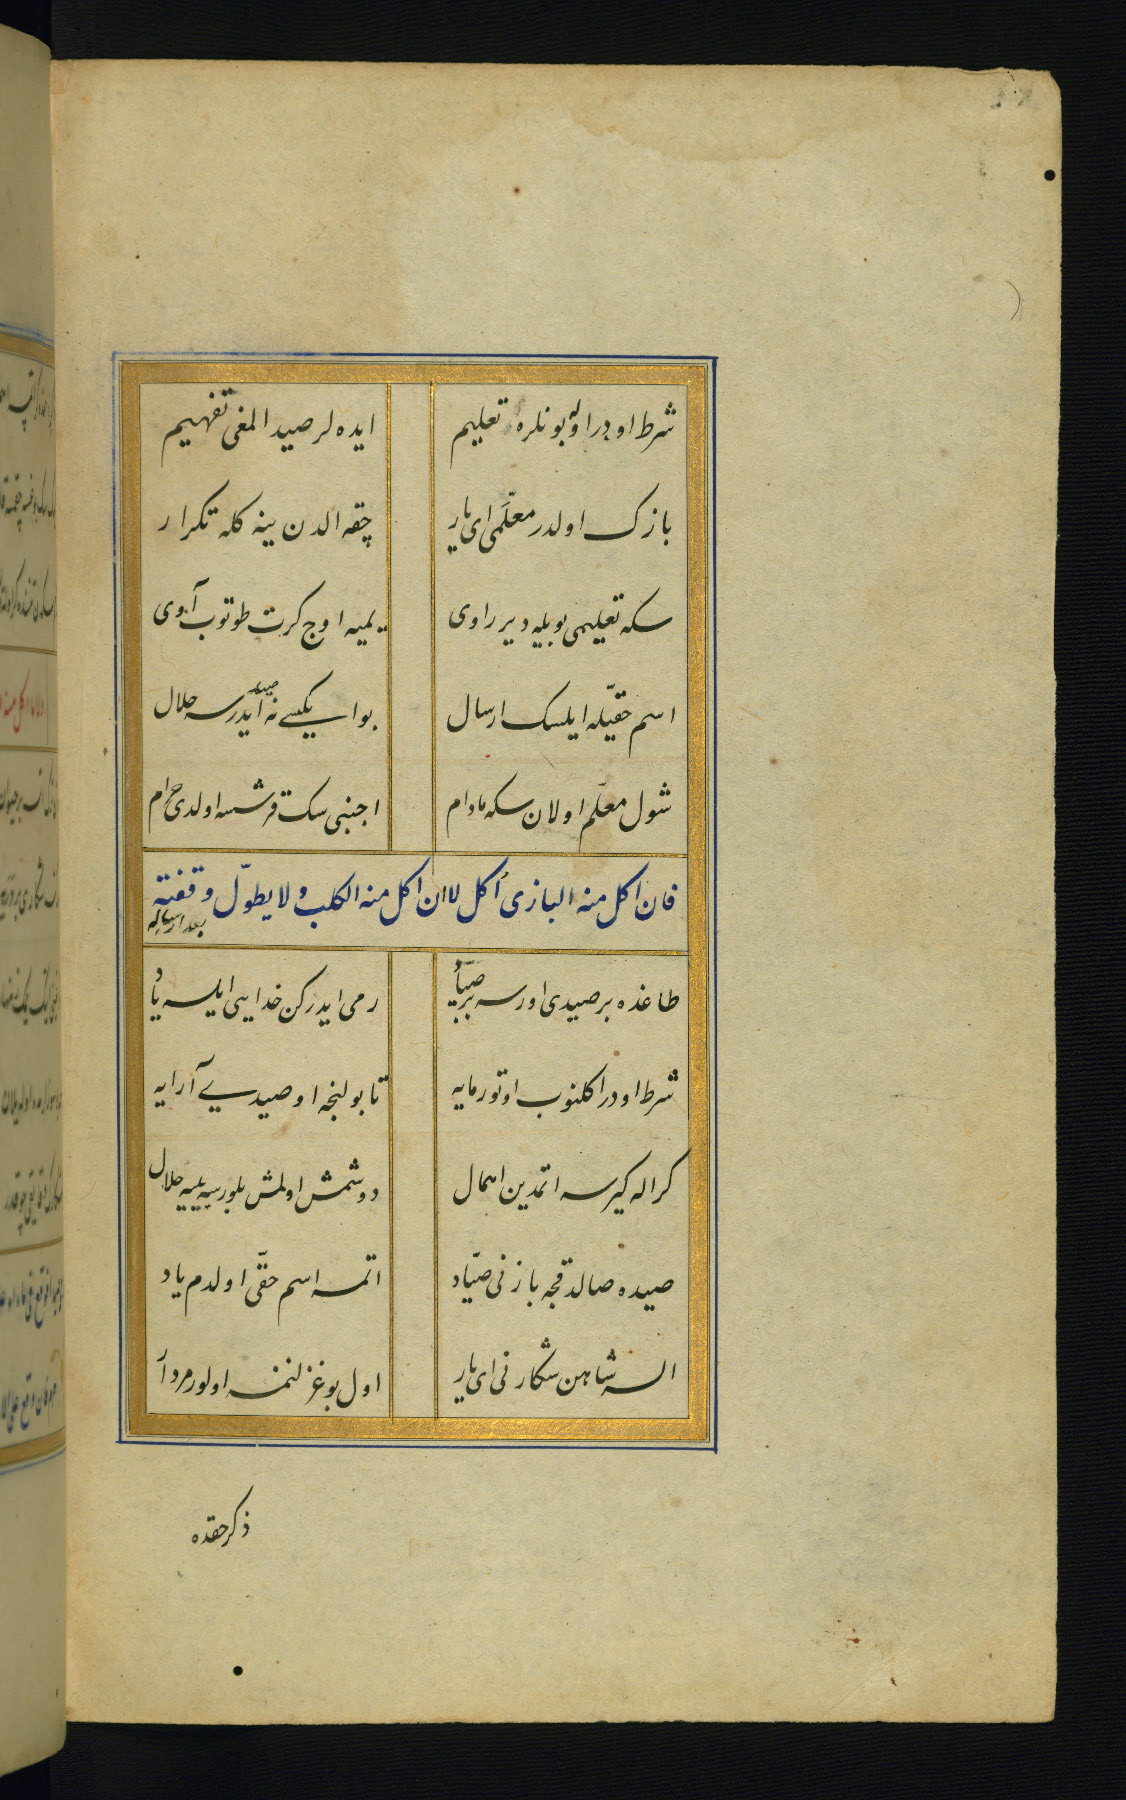 شرط اودر اوّله بونلره تعلیم ایده لر صید المغی تفهیم
بازک اولدر معلّمی ای یار چقه الدن ینه کله تکرار
سکه تعلیمی بویله دیر راوی یمیه اوج کرت طوتوب آوی
اسم حقیّله ایلسک ارسال بو ایکیسی نه صید ایدرسه حلال
شول معلّم اولان سکه مادام اجنبی سک قرشسه اولدی حرام
فان اکل منه البازی اُکل لا ان اکل منه الکلب ولا یطوّل وقفته بعد ارساله
طاغده بر صیدی اورسه بر صیّاد رمی ایدرکن خدایی ایلسه یاد
شرط اودر اکلنوب اوتورمایه تا بولنجه او صیدی آرایه
کر اله کیرسه اتمدین اهمال دوشمش اولمش بلورسه ییه حلال
صیده صالدقچه بازنی صیّاد اتمسه اسم حقّی اولدم یاد
السه شاهن شکارنی ای یار اول بوغزلنمسه اولور مردار
ذکر حقده